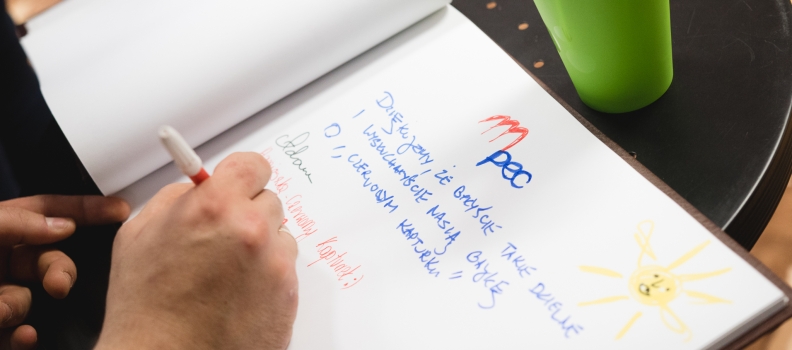 m
pec
DZIĘKUJEMY, ŻE BYŁYŚCIE TAKIE DZIELNE
I WYSŁUCHAŁYŚCIE NASZĄ BAJKĘ
O „CZERWONYM KAPTURKU"
Adam
Czerwony Kapturek :)